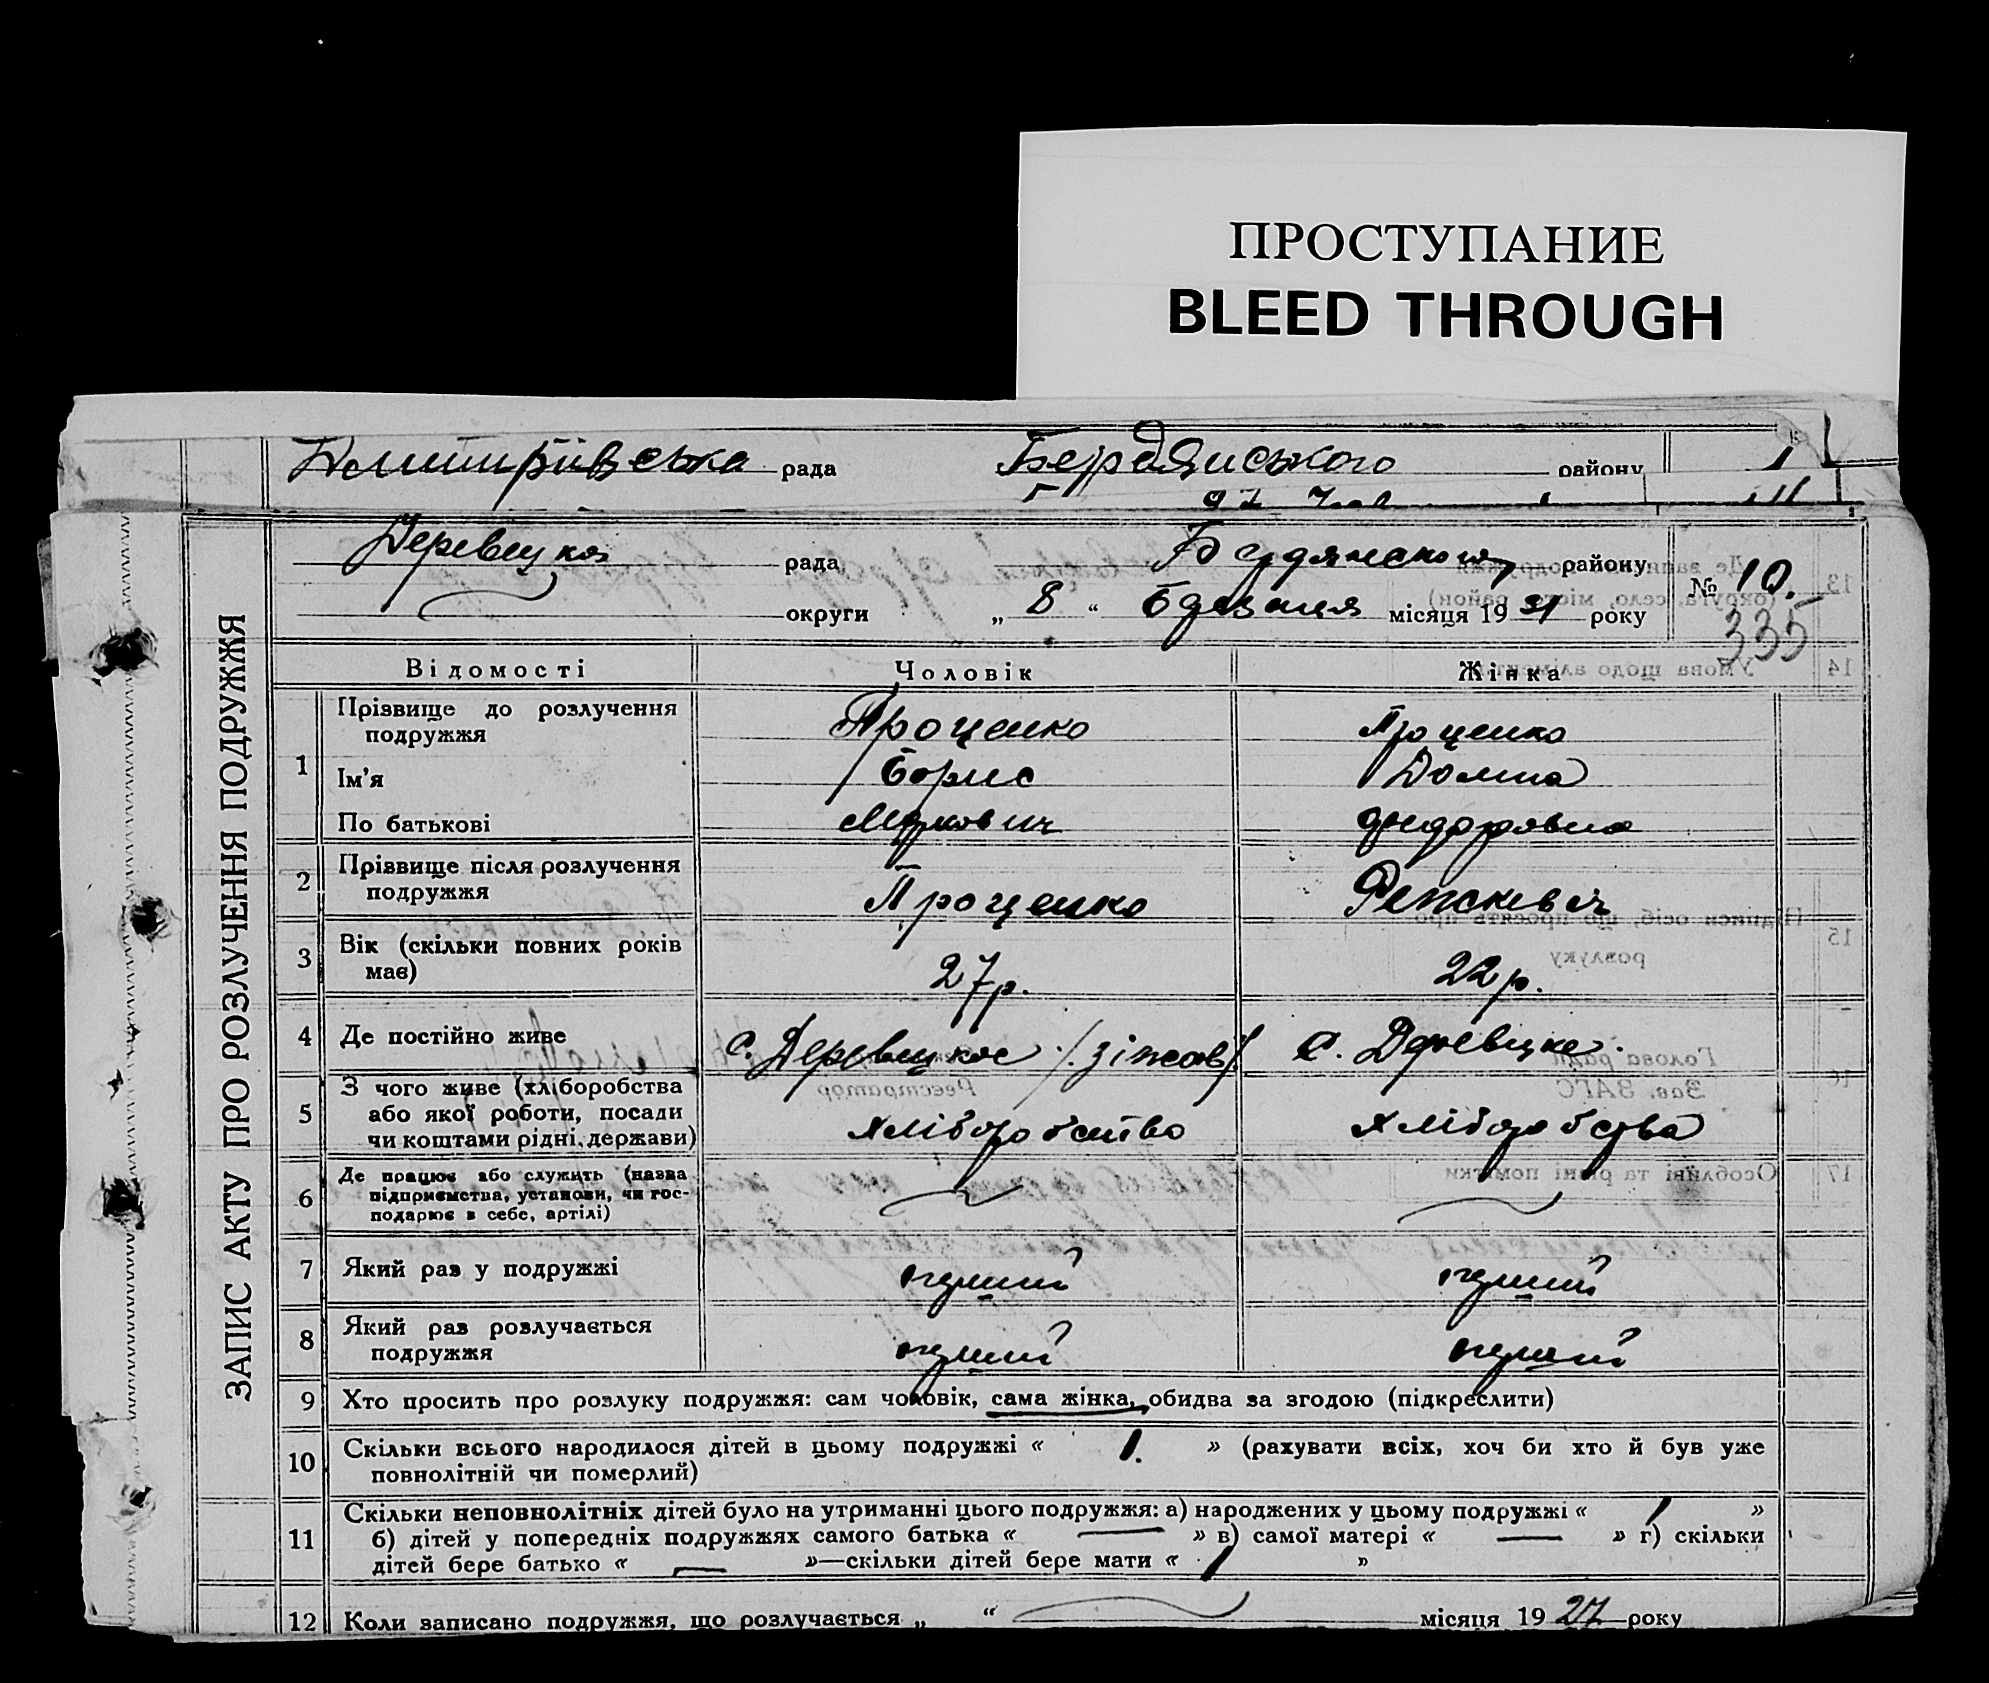 ПРОСТУПАНИЕ
BLEED THROUGH
Дмитрівська рада Бердянського району
Деревецка рада Бердянського району № 10.
округи „ 8 “ місяця 19 31 року 335
ЗАПИС АКТУ ПРО РОЗЛУЧЕННЯ ПОДРУЖЖЯ
Відомості Чоловік Жінка
1 Прізвище до розлучення подружжя Проценко Проценко
Ім'я Борис Домна
По батькові Маркович Федоровна
2 Прізвище після розлучення подружжя Проценко
3 Вік (скільки повних років має) 27 р. 22 р.
4 Де постійно живе с. Деревецкое с. Деревецке.
5 З чого живе (хліборобства або якої роботи, посади чи коштами рідні, держави) Хліборобство Хліборобства
6 Де працює або служить (назва підприємства, установи, чи господарює в себе, артілі)
7 Який раз у подружжі перший перший
8 Який раз розлучається подружжя перший перший
9 Хто просить про розлуку подружжя: сам чоловік, сама жінка, обидва за згодою (підкреслити)
10 Скільки всього народилося дітей в цьому подружжі « 1. » (рахувати всіх, хоч би хто й був уже
повнолітній чи померлий)
11 Скільки неповнолітніх дітей було на утриманні цього подружжя: а) народжених у цьому подружжі « 1 »
б) дітей у попередніх подружжях самого батька « — » в) самої матері « — » г) скільки
дітей бере батько « — »—скільки дітей бере мати « 1 »
12 Коли записано подружжя, що розлучається „ “ місяця 19 27 року